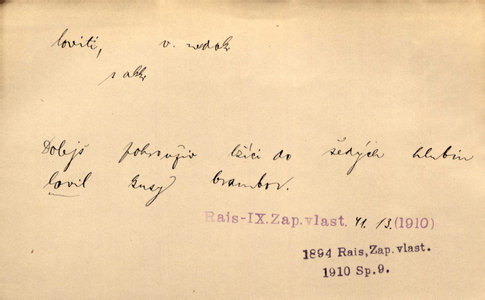 loviti, v. nedok
s akk
Dolejš pohrouživ lžíci do šedých hlubin
lovil kusy brambor.
Rais-IX.Zap.vlast. 41. 13. (1910)
1894 Rais, Zap. vlast.
1910 Sp. 9.